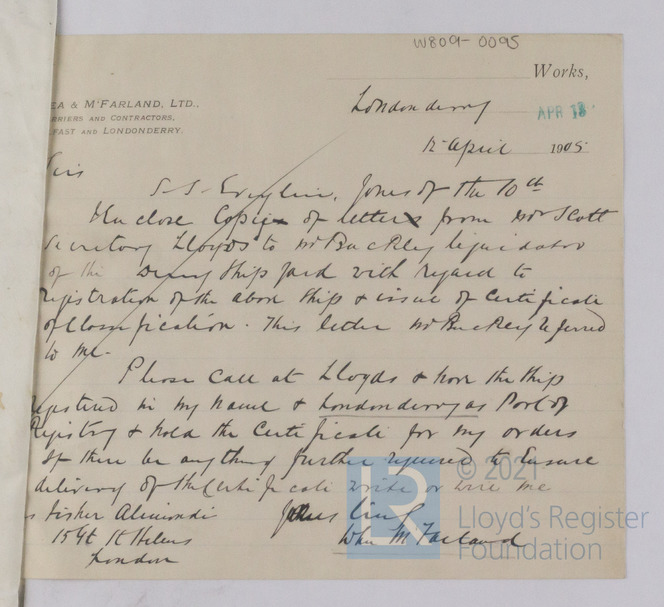 W809-0095
Works,
EA & McFARLAND, LTD.,
RRIERS AND CONTRACTORS,
FAST AND LONDONDERRY.
Londonderry
APR 13
12 April 1905
Sirs
S.S. yours of the 10th
I enclose Copy of letter from Mr Scott
Secretary Lloyds to Mr Buckley liquidator
of the Ship yard with regard to
registration of the above Ship & issue of Certificate
of Classification. This letter Mr Buckley referred
to me.
Please call at Lloyds & have the ship
registered in my name & Londonderry as Port of
Registry & hold the Certificate for my orders
If there be anything further required to Ensure
delivery of the Certificate write or wire me
Fisher Alimonda
Yours truly
15 Gt St Helens
Wm McFarland
London
LR
© 2021
Lloyd's Register
Foundation